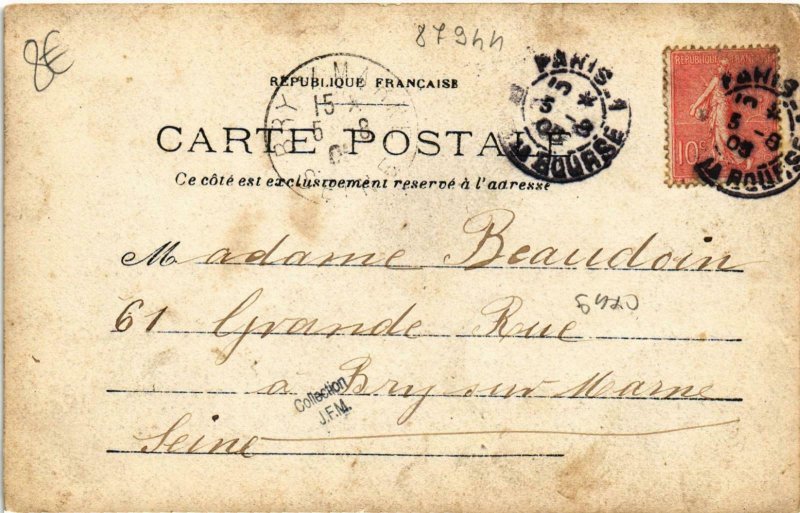 8€
87944
RÉPUBLIQUE FRANÇAISE
CARTE POSTALE
Ce côté est exclusivement réservé à l'adresse
BRY
15 *
5 8
PARIS_1
15 *
5 - 8
03
LA BOURSE
RÉPUBLIQUE FRANÇAISE
10c
PARIS_1
15 *
5 - 8
03
LA BOURSE
Madame Beaudoin
61 Grande Rue
à Bry sur Marne
Seine
Collection
J.F.M.